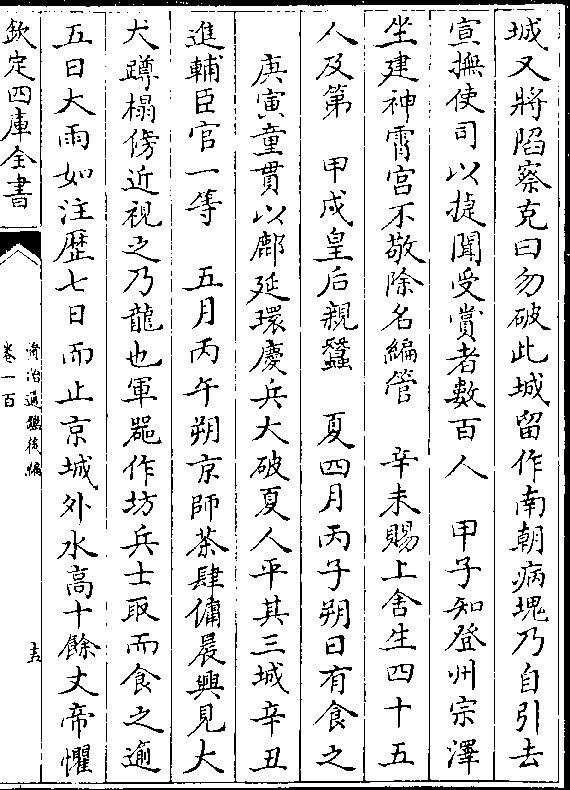 城又將陷察克曰勿破此城留作南朝病塊乃自引去
宣撫使司以捷聞受賞者數百人　甲子知登州宗澤
坐建神霄宮不敬除名編管　辛未賜上舍生四十五
人及第　甲戌皇后親蠶　夏四月丙子朔日有食之
庚寅童貫以鄜延環慶兵大破夏人平其三城辛丑
進輔臣官一等　五月丙午朔京師茶肆傭晨興見大
犬蹲榻傍近視之乃龍也軍器作坊兵士取而食之逾
五日大雨如注歷七日而止京城外水高十餘丈帝懼
欽定四庫全書
資治通鑑後編
卷一百
十五